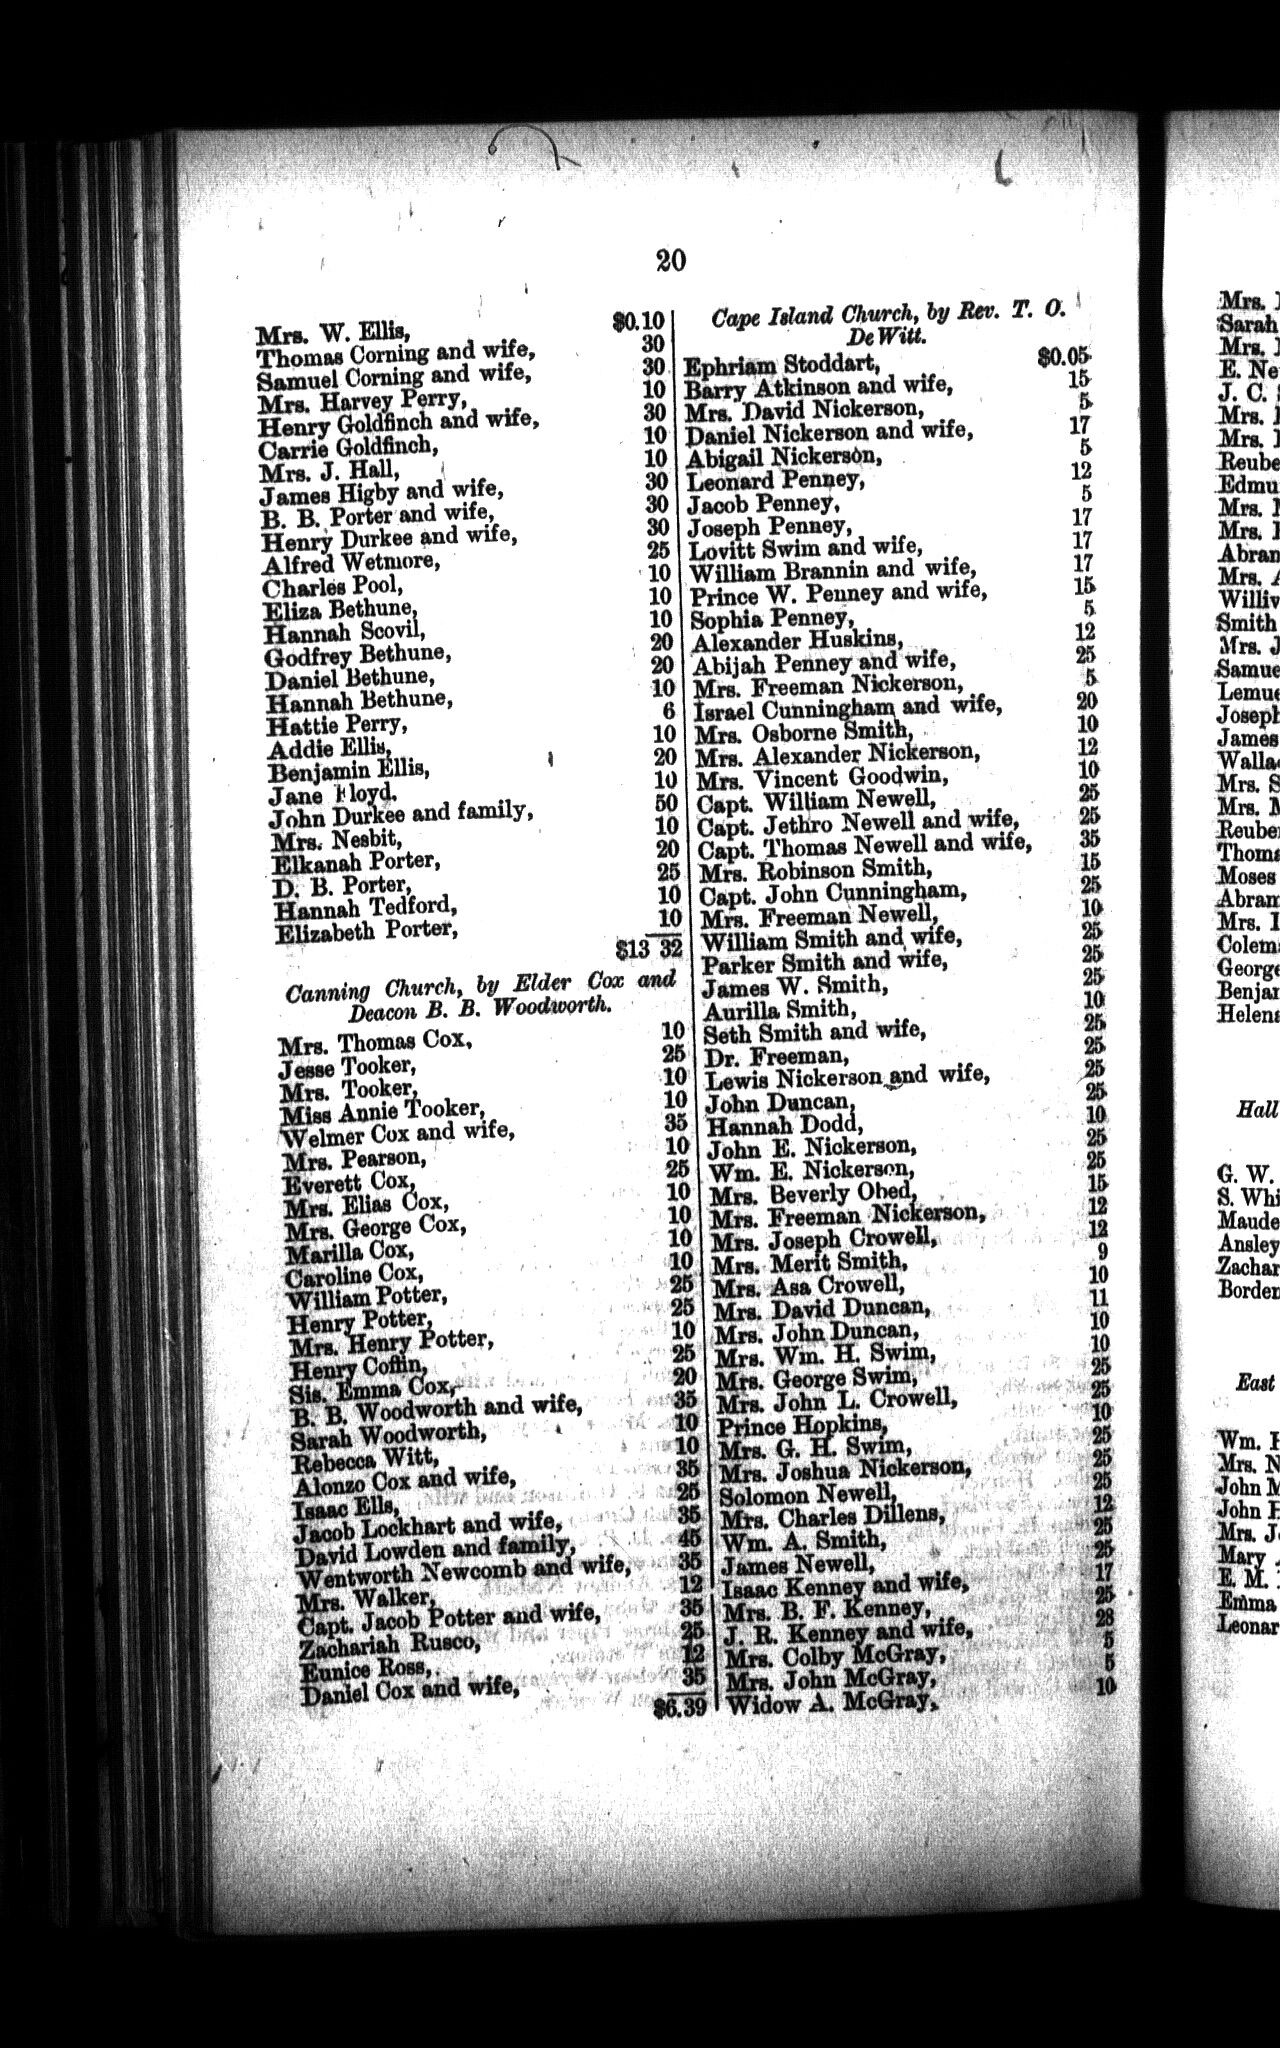 20
Mrs. W. Ellis, $0.10
Thomas Corning and wife, 30
Samuel Corning and wife, 30
Mrs. Harvey Perry, 10
Henry Goldfinch and wife, 30
Carrie Goldfinch, 10
Mrs. J. Hall, 10
James Higby and wife, 30
B. B. Porter and wife, 30
Henry Durkee and wife, 30
Alfred Wetmore, 25
Charles Pool, 10
Eliza Bethune, 10
Hannah Scovil, 10
Godfrey Bethune, 20
Daniel Bethune, 20
Hannah Bethune, 10
Hattie Perry, 6
Addie Ellis, 10
Benjamin Ellis, 20
Jane Floyd. 10
John Durkee and family, 50
Mrs. Nesbit, 10
Elkanah Porter, 20
D. B. Porter, 25
Hannah Tedford, 10
Elizabeth Porter, 10
$13 32
Canning Church, by Elder Cox and
Deacon B. B. Woodworth.
Mrs. Thomas Cox, 10
Jesse Tooker, 25
Mrs. Tooker, 10
Miss Annie Tooker, 10
Welmer Cox and wife, 35
Mrs. Pearson, 10
Everett Cox, 25
Mrs. Elias Cox, 10
Mrs. George Cox, 10
Marilla Cox, 10
Caroline Cox, 10
William Potter, 25
Henry Potter, 25
Mrs. Henry Potter, 10
Henry Coffin, 25
Sis. Emma Cox, 20
B. B. Woodworth and wife, 35
Sarah Woodworth, 10
Rebecca Witt, 10
Alonzo Cox and wife, 35
Isaac Ells, 25
Jacob Lockhart and wife, 35
David Lowden and family, 45
Wentworth Newcomb and wife, 35
Mrs. Walker, 12
Capt. Jacob Potter and wife, 35
Zachariah Rusco, 25
Eunice Ross, 12
Daniel Cox and wife, 35
$6.39
Cape Island Church, by Rev. T. O.
De Witt.
Ephriam Stoddart, $0.05
Barry Atkinson and wife, 15
Mrs. David Nickerson, 5
Daniel Nickerson and wife, 17
Abigail Nickerson, 5
Leonard Penney, 12
Jacob Penney, 5
Joseph Penney, 17
Lovitt Swim and wife, 17
William Brannin and wife, 17
Prince W. Penney and wife, 15
Sophia Penney, 5
Alexander Huskins, 12
Abijah Penney and wife, 25
Mrs. Freeman Nickerson, 5
Israel Cunningham and wife, 20
Mrs. Osborne Smith, 10
Mrs. Alexander Nickerson, 12
Mrs. Vincent Goodwin, 10
Capt. William Newell, 25
Capt. Jethro Newell and wife, 25
Capt. Thomas Newell and wife, 35
Mrs. Robinson Smith, 15
Capt. John Cunningham, 25
Mrs. Freeman Newell, 10
William Smith and wife, 25
Parker Smith and wife, 25
James W. Smith, 25
Aurilla Smith, 10
Seth Smith and wife, 25
Dr. Freeman, 25
Lewis Nickerson and wife, 25
John Duncan, 25
Hannah Dodd, 10
John E. Nickerson, 25
Wm. E. Nickerson, 25
Mrs. Beverly Obed, 15
Mrs. Freeman Nickerson, 12
Mrs. Joseph Crowell, 12
Mrs. Merit Smith, 9
Mrs. Asa Crowell, 10
Mrs. David Duncan, 11
Mrs. John Duncan, 10
Mrs. Wm. H. Swim, 10
Mrs. George Swim, 25
Mrs. John L. Crowell, 25
Prince Hopkins, 10
Mrs. G. H. Swim, 25
Mrs. Joshua Nickerson, 25
Solomon Newell, 25
Mrs. Charles Dillens, 12
Wm. A. Smith, 25
James Newell, 25
Isaac Kenney and wife, 17
Mrs. B. F. Kenney, 25
J. R. Kenney and wife, 28
Mrs. Colby McGray, 5
Mrs. John McGray, 5
Widow A. McGray, 10
Mrs.
Sarah
Mrs.
E.
J. C.
Mrs.
Mrs.
Mrs.
Mrs.
Mrs.
Smith
Mrs.
Joseph
James
Mrs.
Mrs.
Moses
Mrs.
George
Hall
G. W.
S.
Maude
Ansley
East
Wm.
Mrs.
John
John
Mrs.
Mary
E. M.
Emma